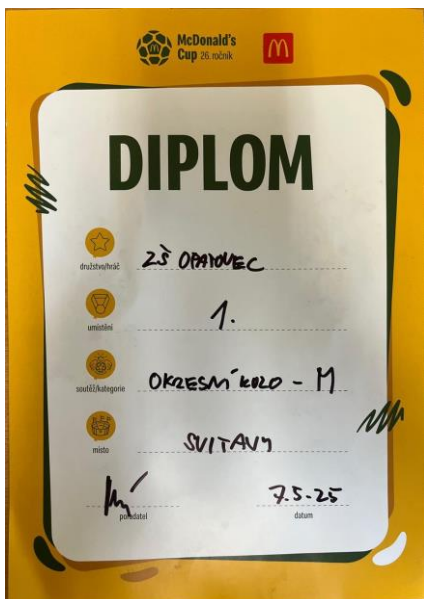 McDonald's
Cup 26. ročník
DIPLOM
družstvo/hráč ZŠ OPATOVEC
umístění 1.
soutěž/kategorie OKRESNÍ KOLO - M
místo SVITAVY
pořadatel
7.5-25
datum